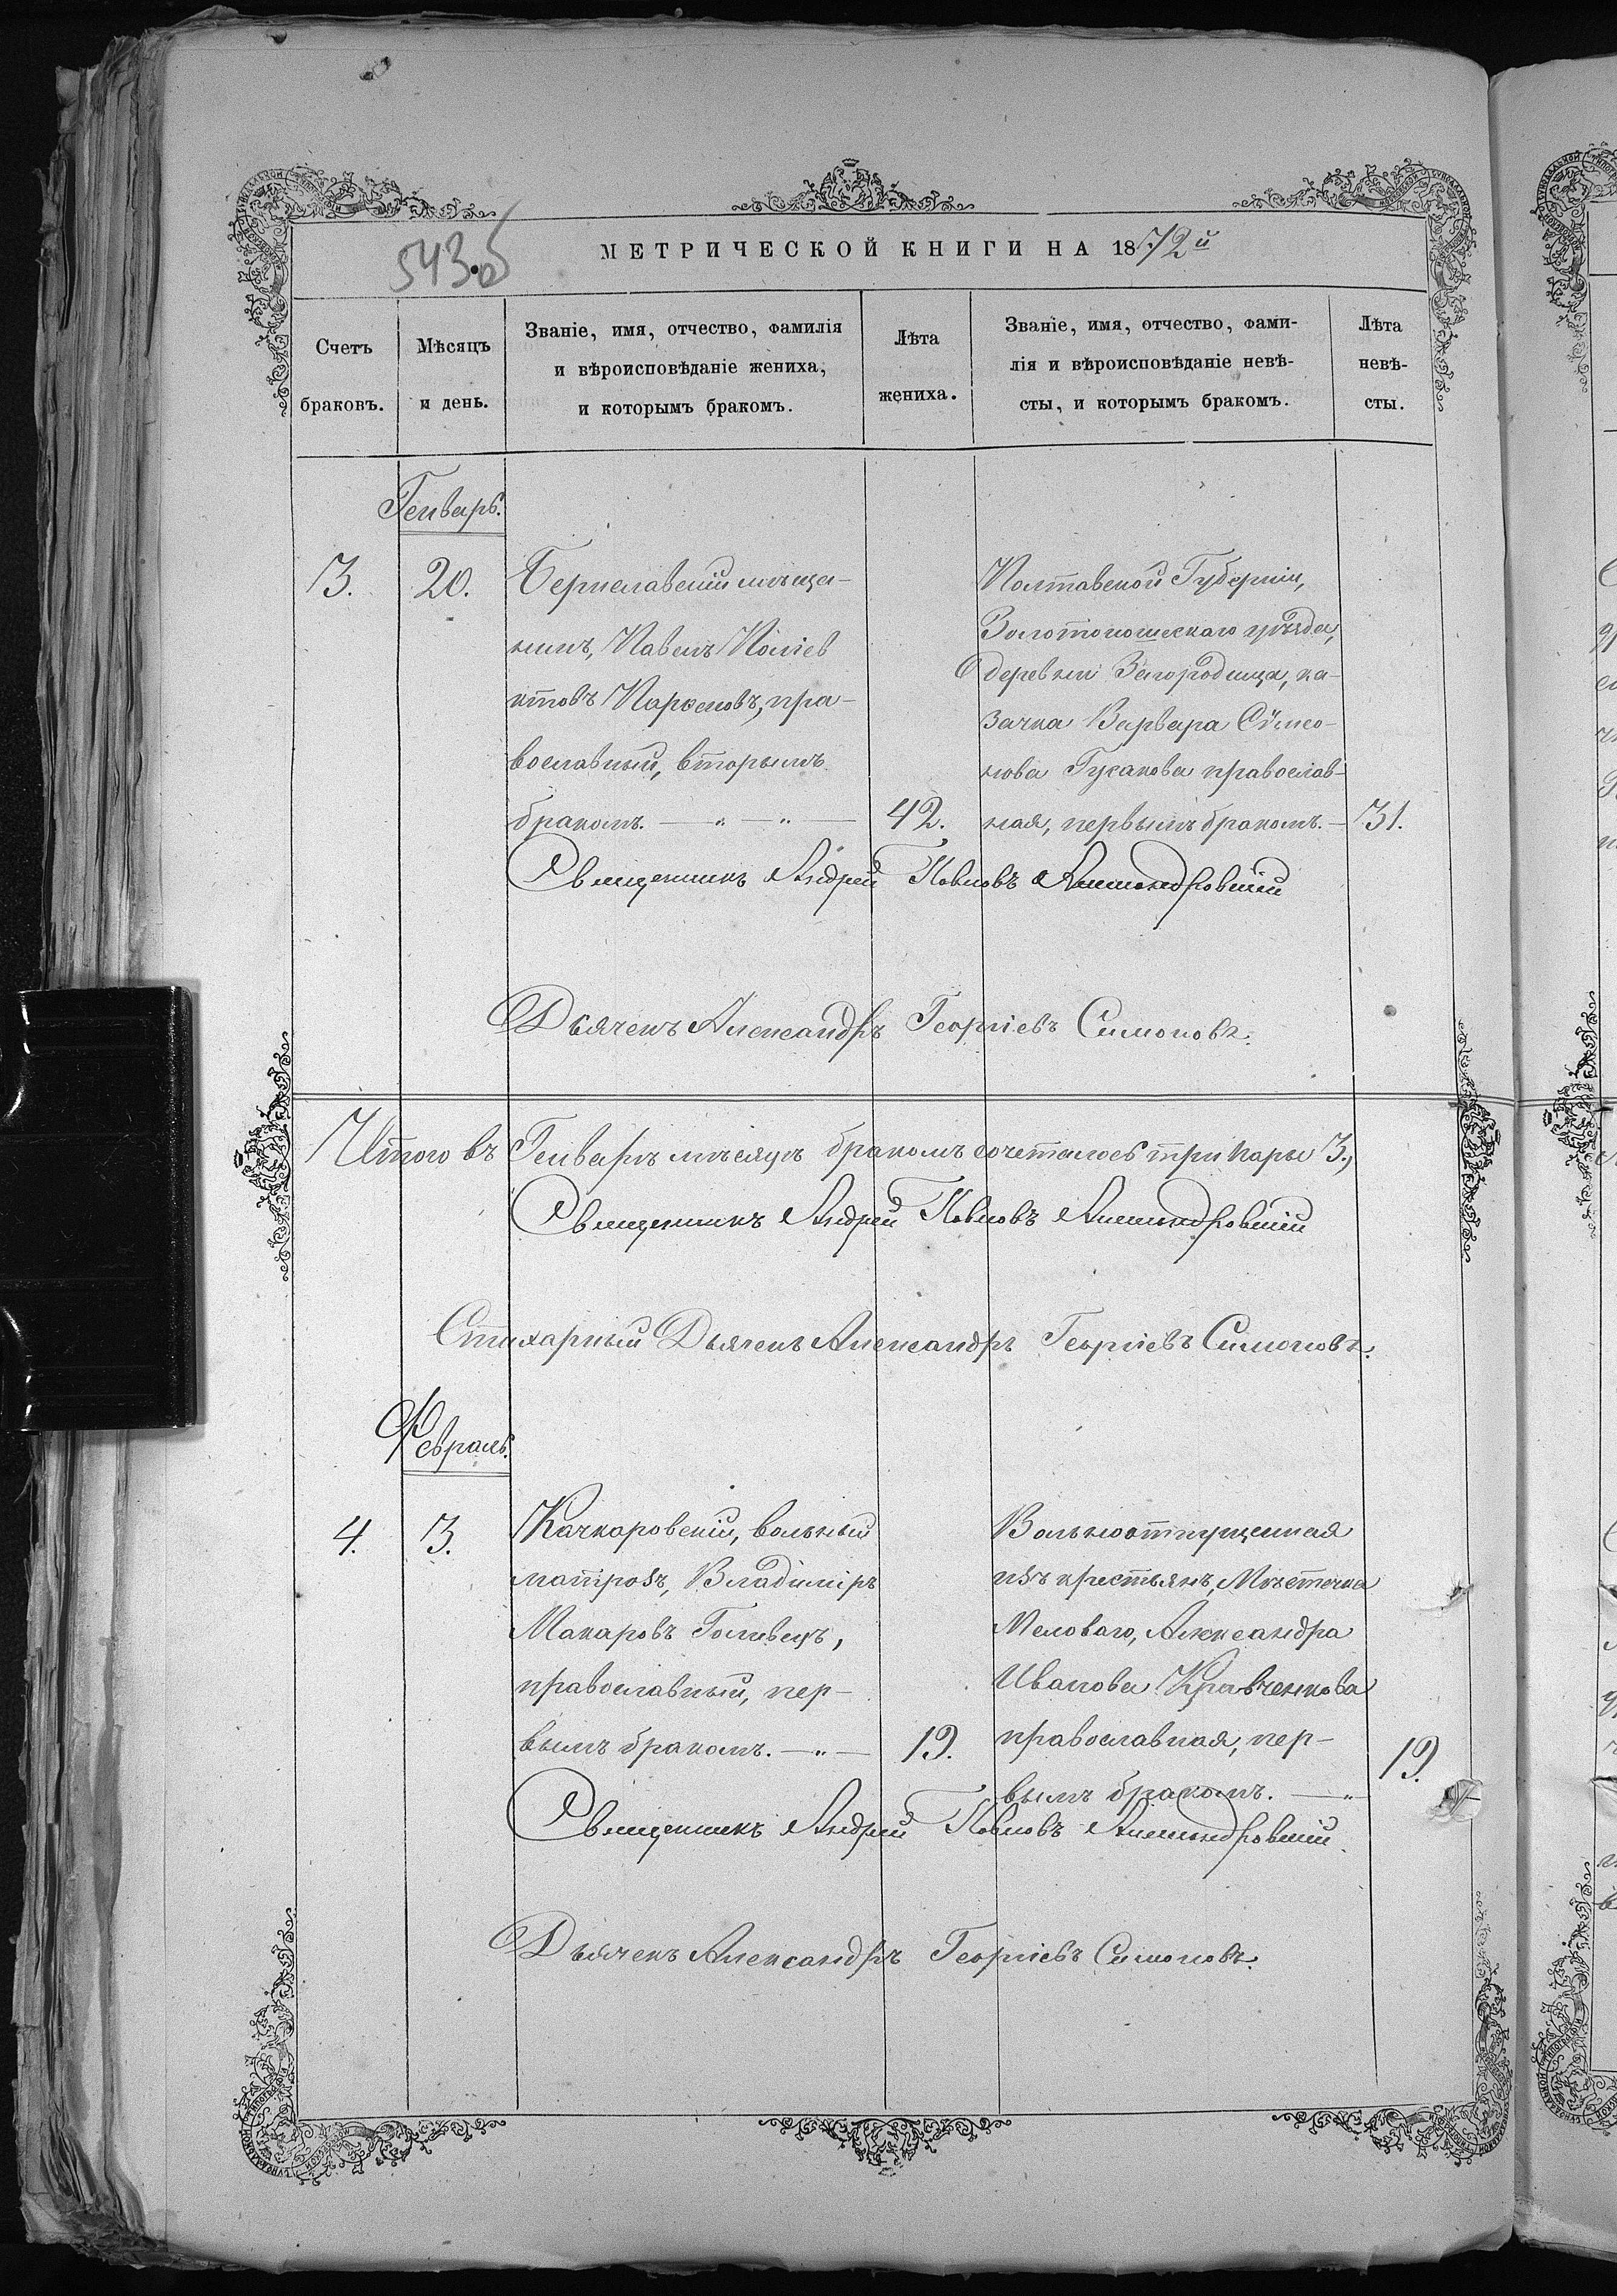 543.об
МЕТРИЧЕСКОЙ КНИГИ НА 1872й
Счетъ браковъ.
Мѣсяцъ и день.
Званіе, имя, отчество, фамилія
и вѣроисповѣданіе жениха,
и которымъ бракомъ.
Лѣта жениха.
Званіе, имя, отчество, фами-
лія и вѣроисповѣданіе невѣ-
сты, и которымъ бракомъ.
Лѣта невѣ-
сты.
Генварь.
3. 20.
Бериславскій мѣща-
нинъ, Павелъ Поліев
ктовъ Парѳеновъ, пра-
вославный, вторымъ
бракомъ. — „ — „ — 42.
Полтавской Губерніи,
Золотоношескаго уѣзда,
деревни Загородища, ка-
зачка Варвара Сѵмео-
нова Гусакова православ-
ная, первымъ бракомъ. — 31.
Священникъ Андрей Павловъ Александровскій
Дьячекъ Александръ Георгіевъ Симоновъ.
Итого въ Генварѣ мѣсяцѣ бракомъ сочеталось три пары 3.,
Священникъ Андрей Павловъ Александровскій
Стихарный Дьячекъ Александръ Георгіевъ Симоновъ.
Февраль.
4. 3.
Качкаровскій, вольный
матрозъ, Владиміръ
Макаровъ Голивецъ,
православный, пер-
вымъ бракомъ. — „ — 19.
Вольноотпущенная
изъ крестьянъ, Мѣстечка
Меловаго, Александра
Иванова Кравченкова
православная, пер-
вымъ бракомъ. — „ 19.
Священникъ Андрей Павловъ Александровскій.
Дьячекъ Александръ Георгіевъ Симоновъ.